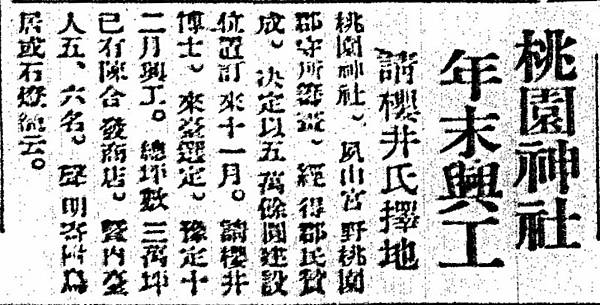 桃園神社
年末興工
請櫻井氏擇地
桃園神社、夙由宮野桃園
郡守所籌。經得郡民賛
成。決定以五萬餘圓建設
位置訂來十一月。請櫻井
博士。來臺選定。豫定十
二月興工。總坪數三萬坪
已有陳合發商店。暨內臺
人五、六名。聲明寄附鳥
居或石燈籠云。